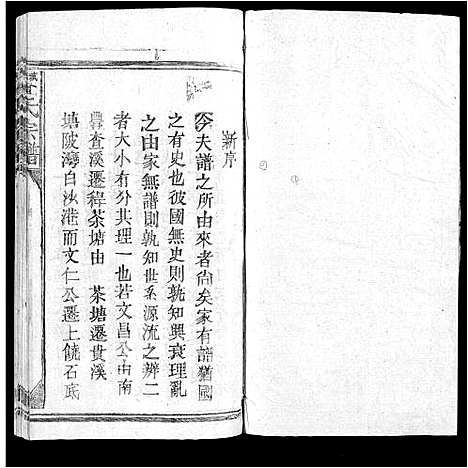 新序
今夫譜之所由來者尚矣家有譜猶國
之有史也彼國無史則孰知興衰理亂
之由家無譜則孰知世系源流之辨二
者大小有分其理一也若文昌公由南
豐查溪遷稈茶塘由 茶塘遷貴溪
塘陂灣白沙港而文仁公遷上饒石底
氏宗譜